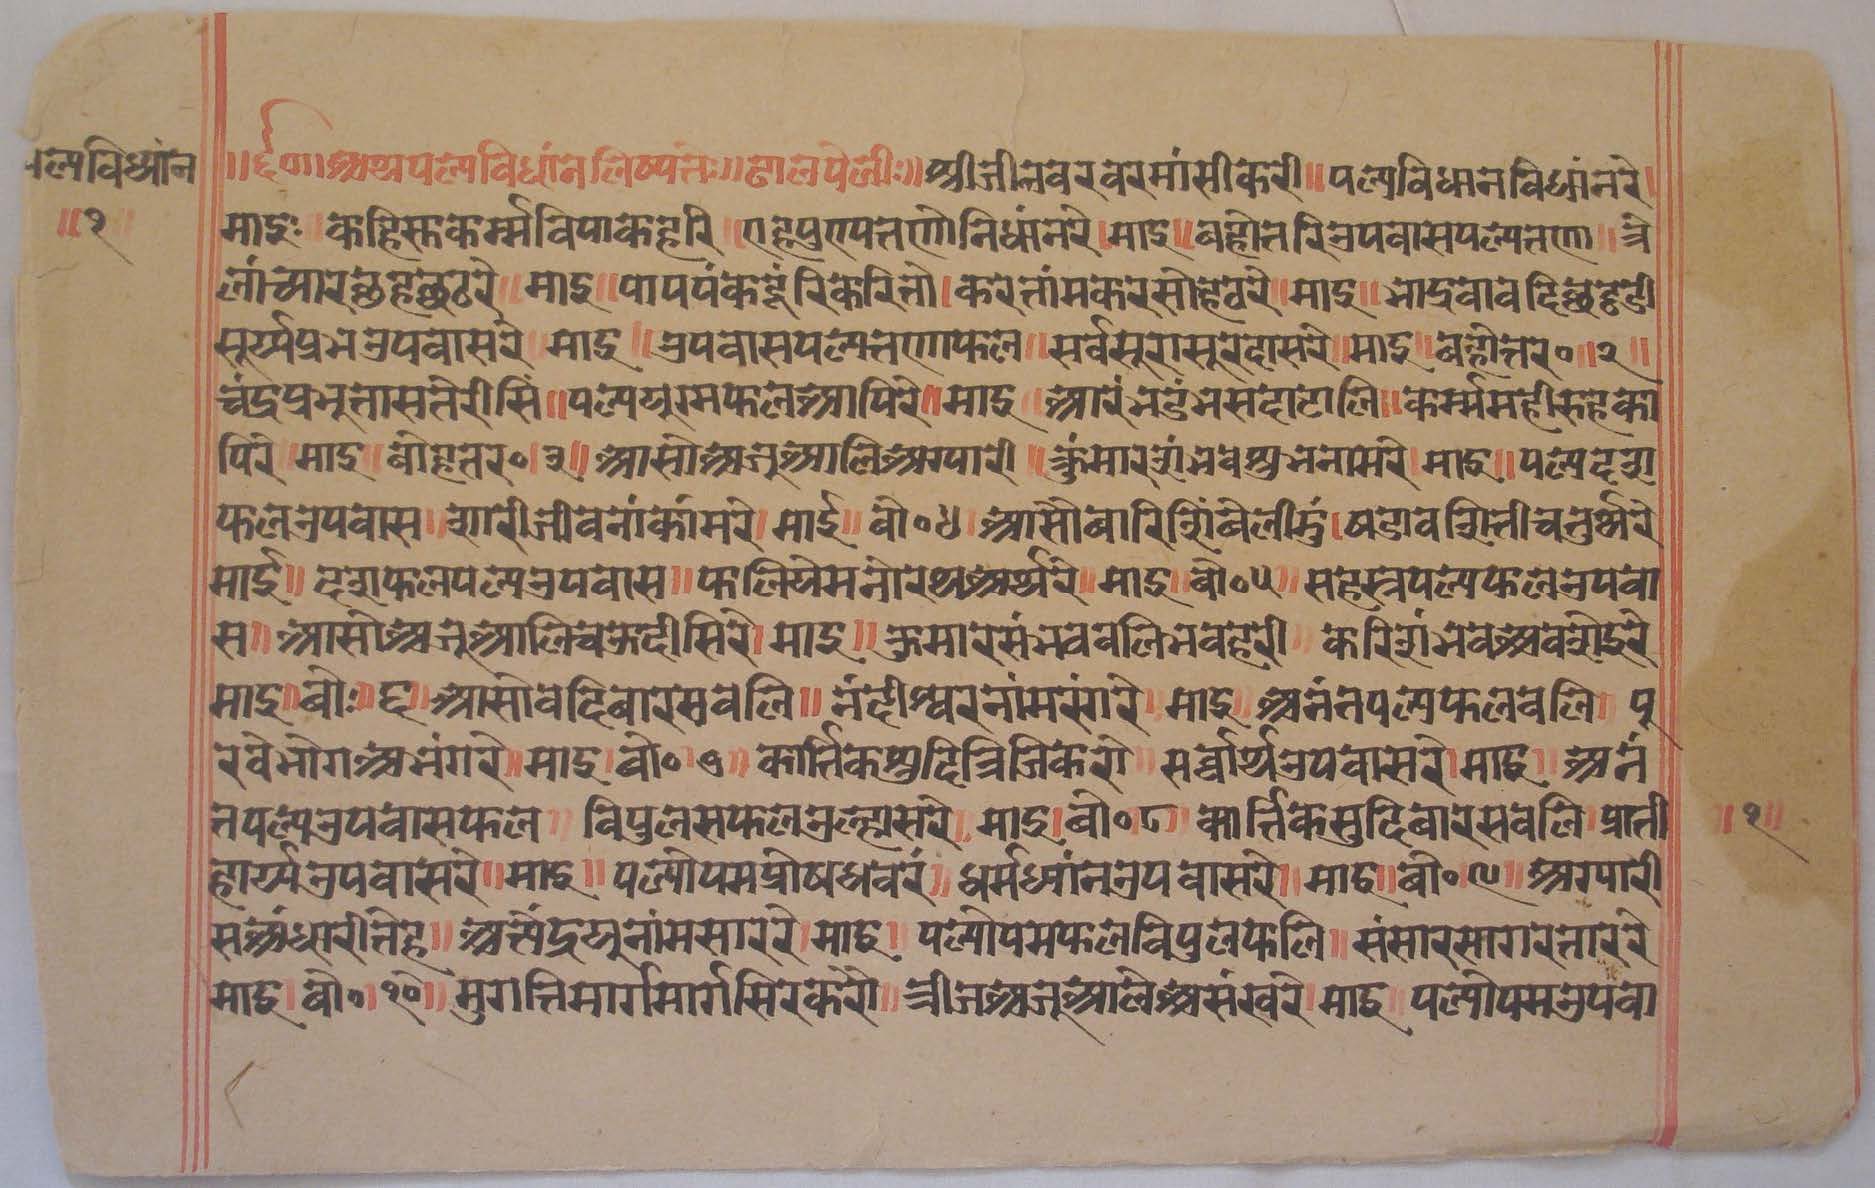 पल्यविधांन
॥१
॥६०॥ अथ पल्यविधांन लिख्यते ॥ ढालपेली ॥ श्रीजीनवरवरमांसीकेरी ॥ पल्यविधानविधांनरे
माइः कहिस्तकर्म्मविपाकहरि एहपुण्यतणोनिधांनरे माइ ॥ बहोतरिउपवासपल्यतणा ॥ त्रे
लांच्यारछहछठरे ॥ माइ ॥ पापपंकदूंरिकेरितौ करेतांमकरसीहेठरे ॥ माइ ॥ भाद्रवावदिछठ्ठी
सूर्य्यप्रभउपवासरे माइ उपवासपल्यतणाफल ॥ सर्वसूरासूरदासरे ॥ माइ बहोत्तर० ॥२॥
चंद्रप्रभुतासतेरीसिं ॥ पल्ययुगमफलआपिरे ॥ माइ आरंभडंभसदाटालि ॥ कर्म्ममहीरुहका
पिरे माइ बौहतर० ३ ॥ आसोअजुआलिअग्यारी कुंमारशंभवशुभनामरे माइ ॥ पल्यदश
फलउपवास शारीजीवनांकांमरे माई ॥ बौ०४ आसौबारिशिंबेलीमुं षडावशितीचतुर्थरे
माई ॥ दशफलपल्यउपवास ॥ फलियेमनोरथअर्थरे ॥ माइ ॥ बौ०५ ॥ सहस्त्रपल्यफलउपवा
स ॥ आसोअजुआलिचऊदीसिरे माइ ॥ कुमारसंभववलिभवहरी करिशंभवअवशेइरे
माइ ॥ बौः ६ आसोवदिबारसवलि ॥ नंदीश्वरनांमसंगरे माइ अनंतपल्यफलवलि पू
रवेभोगअभंगरे ॥ माइ बौ० ७ कार्त्तिकशुदित्रिजिकेरो सर्व्वार्थउपवासरे माइ अनं
तपल्यउपवासफल विपुलसफलउल्हासरे माइ बौ०८ कार्त्तिकसुदिबारसवलि प्राती
हार्य्यउपवासरे ॥ माइ ॥ पल्योपमप्रौषधवरं धर्मध्यांनउपवासरे ॥ माइ ॥ बौ०९ ॥ अग्यारी
सअंधारीतेह ॥ अत्तेंद्रयुनांमसाररे माइ पल्योपमफलविपुलफलि ॥ संसारसागरताररे
माइ बौ०१० मुगत्तिमार्गमार्गसिरकेरो ॥ त्रीजअजूआलेअसंखरे माइ पल्योपमउपवा
॥१॥